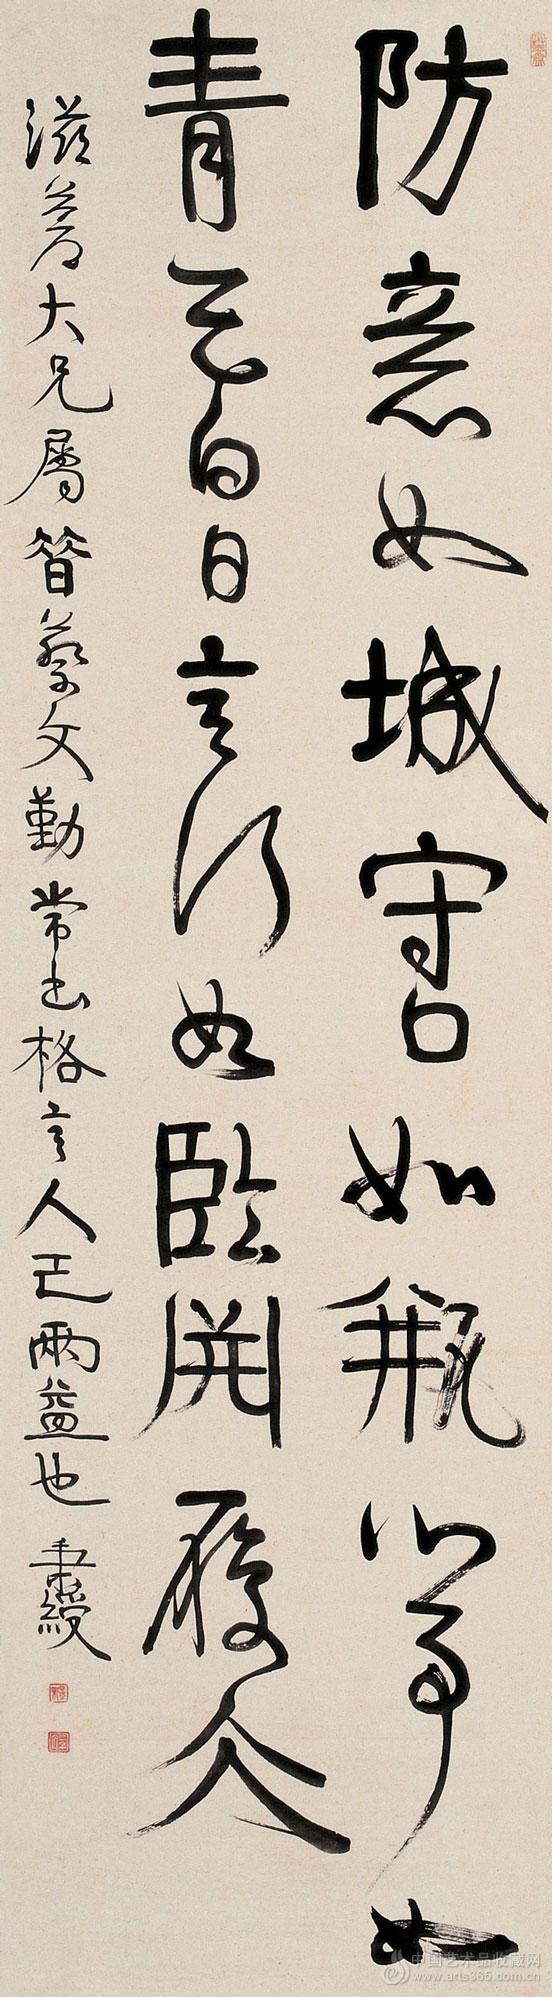 防意如城守口如瓶心事如
青天白日言行如臨淵履仌
滋大兄屬昔蔡文勤常書格言人己兩益也 秉綬
中国艺术品收藏网
www.arts365.com.cn